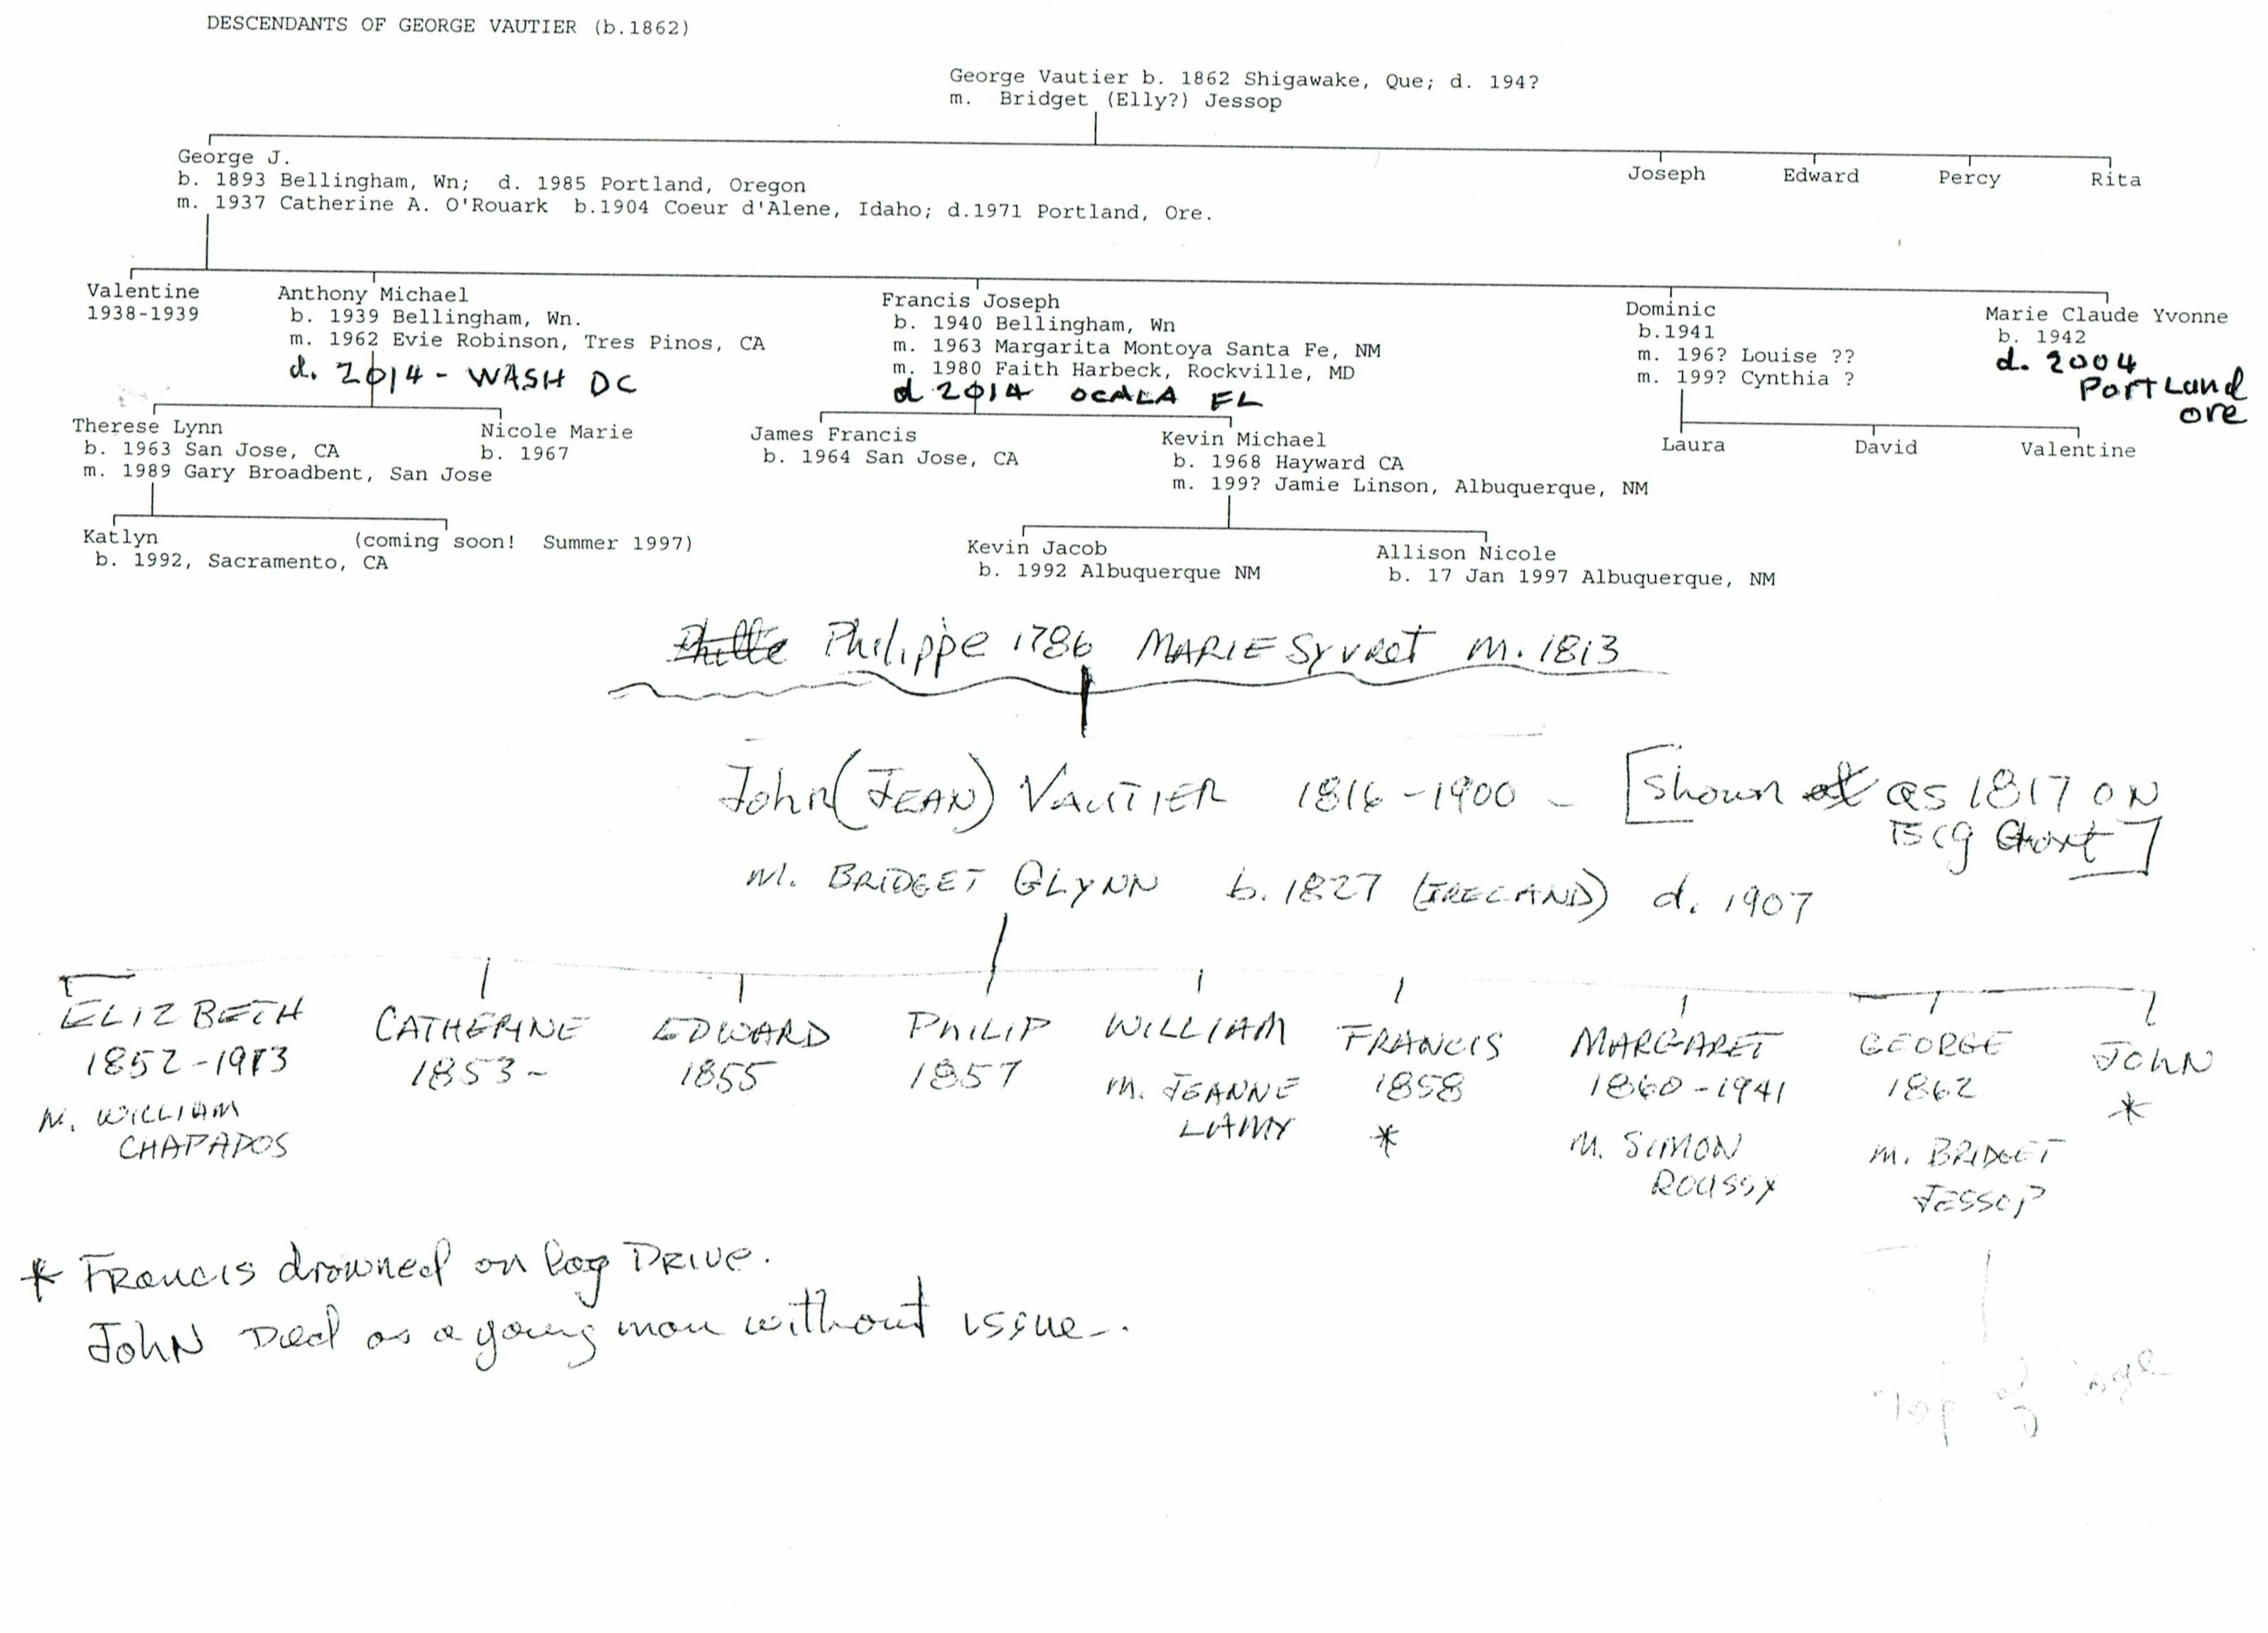 DESCENDANTS OF GEORGE VAUTIER (b.1862)
George Vautier b. 1862 Shigawake, Que; d. 194?
m. Bridget (Elly?) Jessop
George J.
b. 1893 Bellingham, Wn; d. 1985 Portland, Oregon
m. 1937 Catherine A. O'Rouark b.1904 Coeur d'Alene, Idaho; d.1971 Portland, Ore.
Joseph
Edward
Percy
Rita
Valentine
1938-1939
Anthony Michael
b. 1939 Bellingham, Wn.
m. 1962 Evie Robinson, Tres Pinos, CA
d. 2014 - WASH DC
Francis Joseph
b. 1940 Bellingham, Wn
m. 1963 Margarita Montoya Santa Fe, NM
m. 1980 Faith Harbeck, Rockville, MD
d 2014 OCALA FL
Dominic
b.1941
m. 196? Louise ??
m. 199? Cynthia ?
Marie Claude Yvonne
b. 1942
d. 2004
Portland
ore
Therese Lynn
b. 1963 San Jose, CA
m. 1989 Gary Broadbent, San Jose
Nicole Marie
b. 1967
James Francis
b. 1964 San Jose, CA
Kevin Michael
b. 1968 Hayward CA
m. 199? Jamie Linson, Albuquerque, NM
Laura
David
Valentine
Katlyn
b. 1992, Sacramento, CA
(coming soon! Summer 1997)
Kevin Jacob
b. 1992 Albuquerque NM
Allison Nicole
b. 17 Jan 1997 Albuquerque, NM
Philippe 1786 MARIE SyvRet m. 1813
John (JEAN) VAUTIER 1816-1900 - [shown as 1817 ON
BIg Chart]
m. BRIDGET GLYNN b. 1827 (IRELAND) d. 1907
ELIZBETH
1852-1913
M. WILLIAM
CHAPADOS
CATHERINE
1853-
EDWARD
1855
PHILIP
1857
WILLIAM
m. JEANNE
LAMY
FRANCIS
1858
*
MARGARET
1860-1941
M. SIMON
ROUSSY
GEORGE
1862
m. BRIDGET
JESSOP
JOHN
*
* FRancis drowned on log DRIVE.
JohN Died as a young man without issue.
Top of page